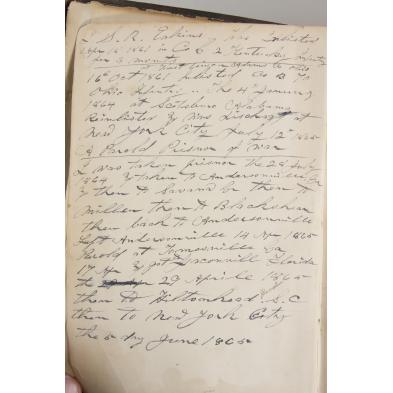 I S. R. Eakins, Was Enlisted
Apr 16 1861 in Co 2 Kentucky Infantry
for 3 months
16th Oct 1861 enlisted Co B 70
Ohio Infantry. The 4th January
1864 at Scottsboro Alabama
Reinlisted & Was Discharged at
New York City July 12th 1865
A Parold Prisnor of War
I Was taken prisnor the 22 July
1864 & taken to Andersonville Ga
& then to Savanah then to
Millen then to Blackshear
then back to Andersonville
Left Andersonville 14 Apr 1865
Parold at Thomasville Ga
17 Apr & got Jacksonville Florida
the 29 Aprile 1865
then to Hiltonhead S.C
then to New York City
the 5 day June 1865